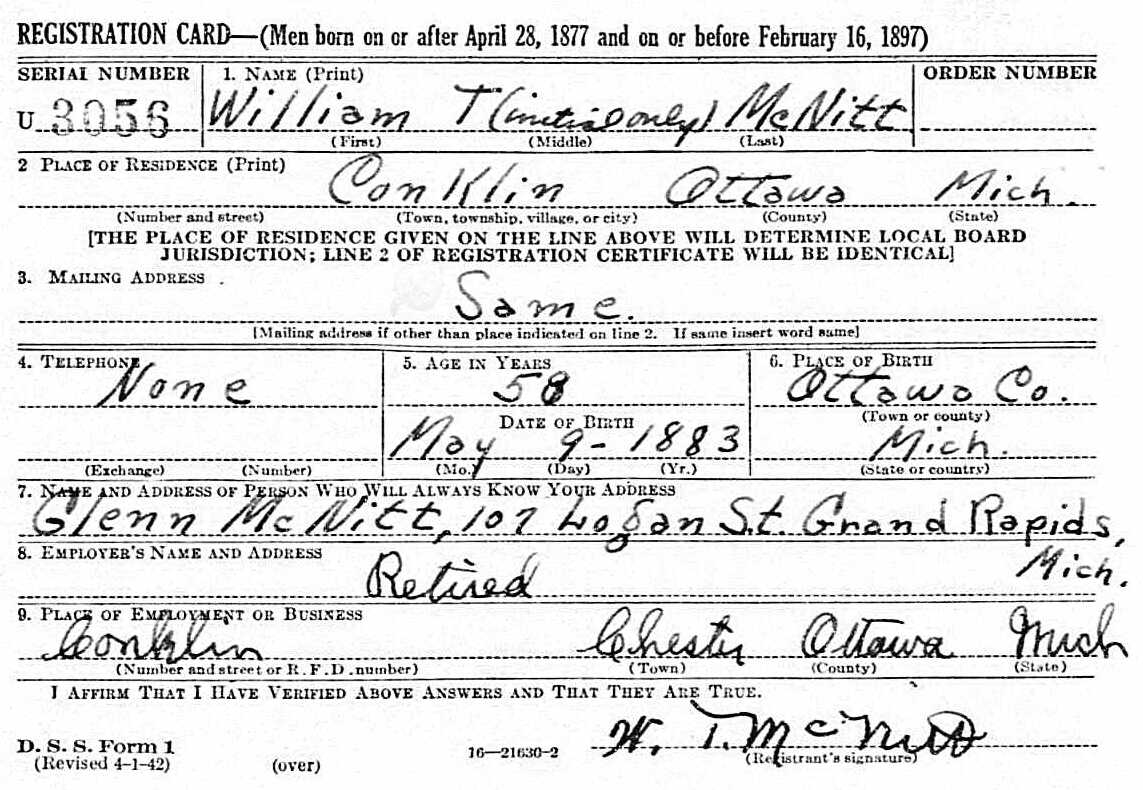 REGISTRATION CARD—(Men born on or after April 28, 1877 and on or before February 16, 1897)
SERIAL NUMBER 1. NAME (Print) ORDER NUMBER
U 3056 William T (initial only) McNitt
(First) (Middle) (Last)
2 PLACE OF RESIDENCE (Print)
Conklin Ottawa Mich.
(Number and street) (Town, township, village, or city) (County) (State)
[THE PLACE OF RESIDENCE GIVEN ON THE LINE ABOVE WILL DETERMINE LOCAL BOARD
JURISDICTION; LINE 2 OF REGISTRATION CERTIFICATE WILL BE IDENTICAL]
3. MAILING ADDRESS
Same.
[Mailing address if other than place indicated on line 2. If same insert word same]
4. TELEPHONE 5. AGE IN YEARS 6. PLACE OF BIRTH
None 58 Ottawa Co.
DATE OF BIRTH (Town or county)
May 9-1883 Mich.
(Exchange) (Number) (Mo.) (Day) (Yr.) (State or country)
7. NAME AND ADDRESS OF PERSON WHO WILL ALWAYS KNOW YOUR ADDRESS
Glenn McNitt, 107 Logan St. Grand Rapids,
8. EMPLOYER'S NAME AND ADDRESS
Retired Mich.
9. PLACE OF EMPLOYMENT OR BUSINESS
Conklin Chester Ottawa Mich
(Number and street or R. F. D. number) (Town) (County) (State)
I AFFIRM THAT I HAVE VERIFIED ABOVE ANSWERS AND THAT THEY ARE TRUE.
W. T. McNitt
D. S. S. Form 1 16—21630-2 (Registrant's signature)
(Revised 4-1-42) (over)